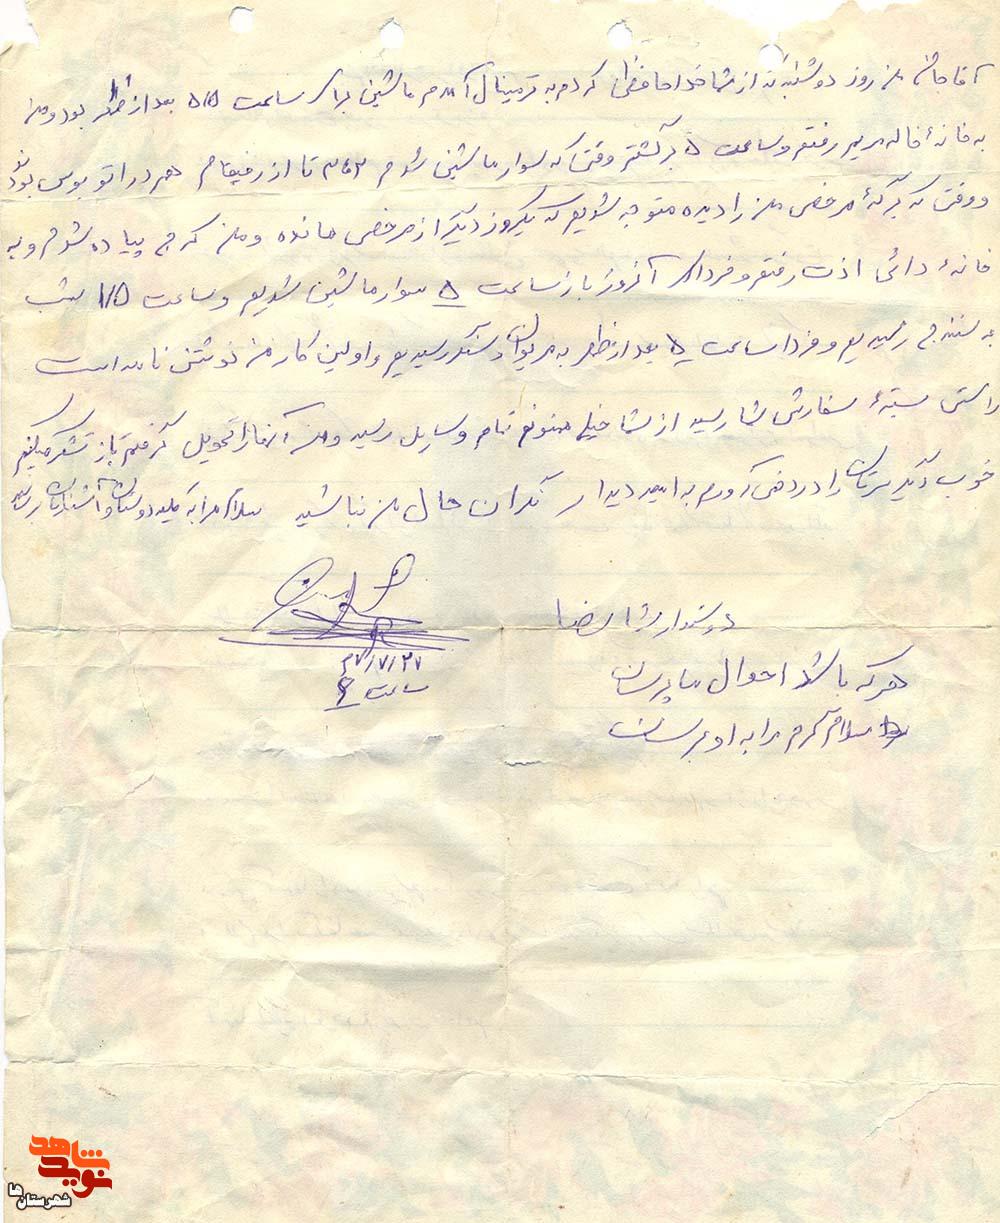 آقاجان من روز دوشنبه که از شما خداحافظی کردم به ترمینال آمدم ماشین برای ساعت ۵/۵ بعد از ظهر بود و من
به خانهٔ خاله مریم رفتم و ساعت ۵ برگشتم وقتی که سوار ماشین شدم ۲ تا از رفیقام هم در اتوبوس بودند
و وقتی که برگهٔ مرخصی من را دیده متوجه شدیم که یکروز دیگر از مرخصی مانده و من کرج پیاده شدم و به
خانهٔ دائی رفتم و فردای آنروز باز ساعت ۵ سوار ماشین شدیم و ساعت ۱/۵ شب
به سنندج رسیدیم و فردا ساعت ۵ بعد از ظهر به مریوان و سنگر رسیدیم و اولین کار من نوشتن نامه است
راستی بستهٔ سفارشی شما رسید از شما خیلی ممنونم تمام وسایل رسید و من آنها را تحویل گرفتم باز تشکر میکنم
خوب دیگر سرتان را درد نمی‌آورم به امید دیدار نگران حال من نباشید سلام مرا به کلیه دوستان و آشنایان برسانید
دوستدار شما رضا
۶۷/۷/۲۷
ساعت ۶
هر که باشد احوال ما پرسان
سلام گرم مرا به او برسان
نوید شاهد
شهرستان‌ها